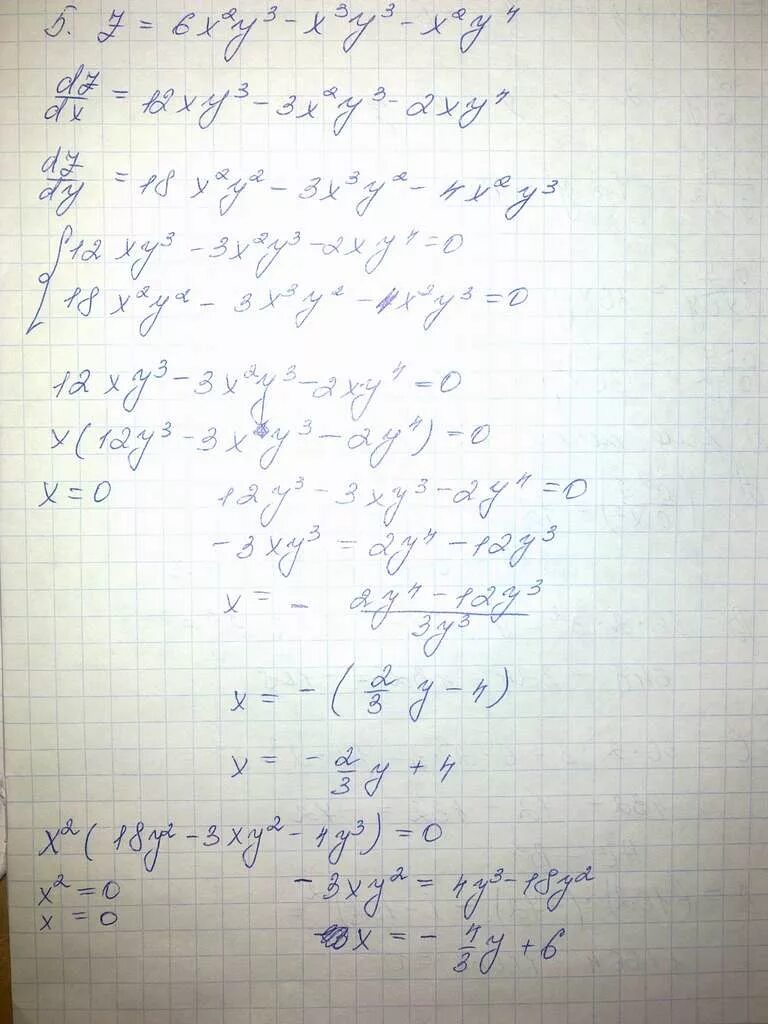 5. Z = 6x²y³ - x³y³ - x²y⁴
dZ/dx = 12xy³ - 3x²y³ - 2xy⁴
dZ/dy = 18x²y² - 3x³y² - 4x²y³
{ 12xy³ - 3x²y³ - 2xy⁴ = 0
18x²y² - 3x³y² - 4x²y³ = 0
12xy³ - 3x²y³ - 2xy⁴ = 0
x(12y³ - 3xy³ - 2y⁴) = 0
x = 0 12y³ - 3xy³ - 2y⁴ = 0
-3xy³ = 2y⁴ - 12y³
x = - (2y⁴ - 12y³)/3y³
x = -(2/3 y - 4)
x = -2/3 y + 4
x²(18y² - 3xy² - 4y³) = 0
x² = 0 -3xy² = 4y³ - 18y²
x = 0 x = -4/3 y + 6